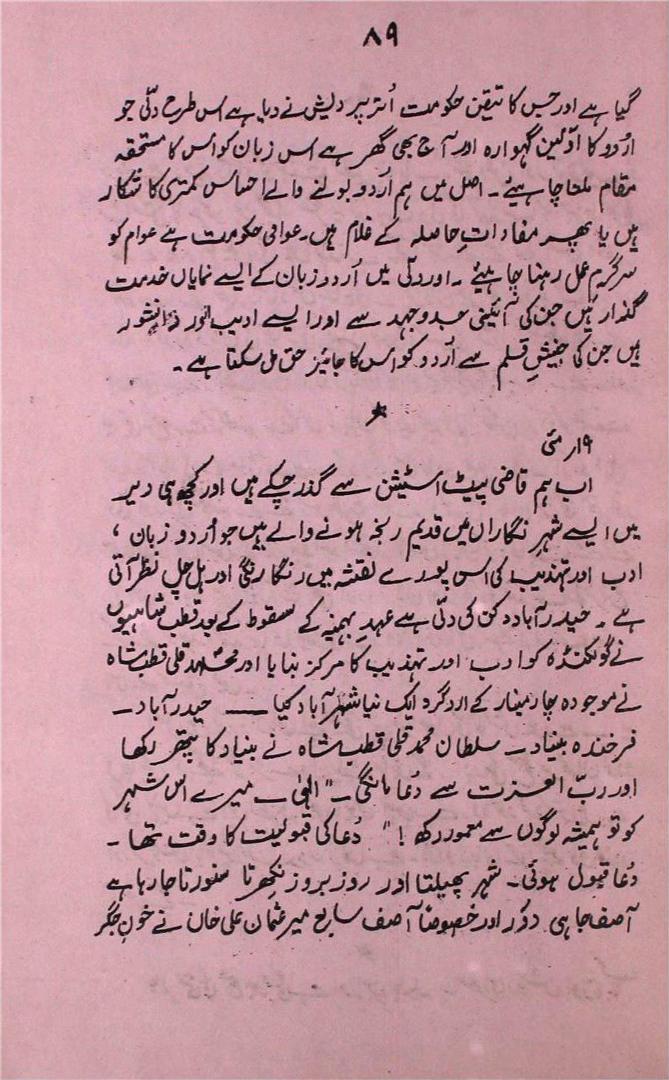 ۸۹
گیا ہے اور جس کا تیقن حکومت اُتر پردیش نے دیا ہے اس طرح دلّی جو
اردو کا اوّلین گہوارہ اور آج بھی گھر ہے اس زبان کو اس کا مستحقہ
مقام ملنا چاہیئے ۔ اصل میں ہم اُردو بولنے والے احساس کمتری کا شکار
ہیں یا پھر مفاداتِ حاصلہ کے غلام ہیں ۔ عوامی حکومت ہے عوام کو
سرگرمِ عمل رہنا چاہیئے ۔ اور دلّی میں اُردو زبان کے ایسے نمایاں خدمت
گذار ہیں جن کی آئینی جدوجہد سے اور ایسے ادیب اور دانشور
ہیں جن کی جنبشِ قلم سے اُردو کو اس کا جائیز حق مل سکتا ہے ۔
★
۱۹ر مئی
اب ہم قاضی پیٹ اسٹیشن سے گذر چکے ہیں اور کچھ ہی دیر
میں ایسے شہرِ نگاراں میں قدیم رنجہ ہونے والے ہیں جو اُردو زبان ،
ادب اور تہذیب کی اس پورے نقشہ میں رنگا رنگی اور ہل چل نظر آتی
ہے ۔ حیدرآباد دکن کی دلّی ہے عہدِ بہمنیہ کے سقوط کے بعد قطب شاہیوں
نے گولکنڈہ کو ادب اور تہذیب کا مرکز بنایا اور محمد قلی قطب شاہ
نے موجودہ چار مینار کے اردگرد ایک نیا شہر آباد کیا ــــ حیدرآباد ــ
فرخندہ بنیاد ۔ سلطان محمد قلی قطب شاہ نے بنیاد کا پتھر رکھا
اور ربّ العزت سے دُعا مانگی ۔ " الٰہی ۔ میرے اس شہر
کو تو ہمیشہ لوگوں سے معمور رکھ ! " دُعا کی قبولیت کا وقت تھا ۔
دُعا قبول ہوئی ۔ شہر پھیلتا اور روز بروز نکھرتا سنورتا جارہا ہے
آصف جاہی دور اور خصوصاً آصف سابع میر عثمان علی خان نے خونِ جگر